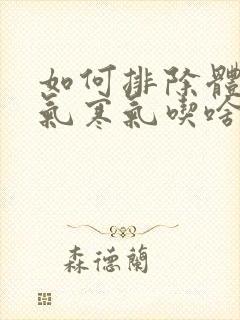 如何排除體
氣寒氣喫啥
森德蘭